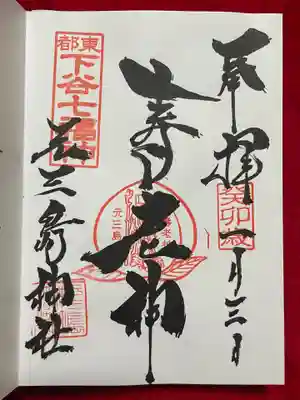 奉拝
癸卯歳
一月三日
壽老神
元三島
東都
下谷七福神
元三島神社